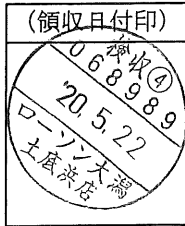 (領収日付印)
検収④
068989
'20.5.22
ローソン大潟
土底浜店